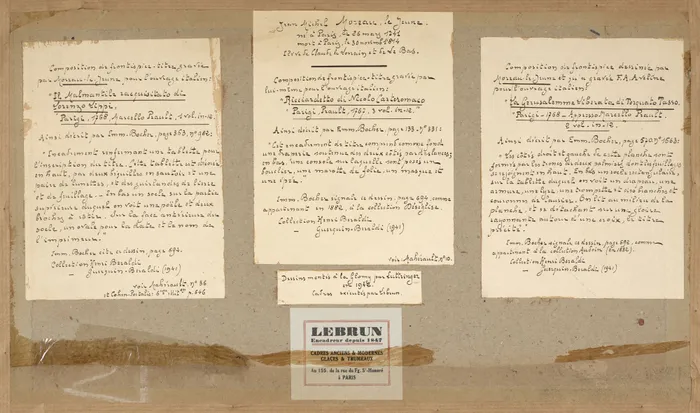 Composition de frontispice-titre gravée
par Moreau-le-Jeune pour l'ouvrage italien:
"Il Malmantile racquistato di
Lorenzo Lippi,
Parigi, 1768, Marcello Prault, 1 vol. in-12.
Ainsi décrit par Emm. Bocher, page 363, nº 962:
"Encadrement renfermant une tablette pour
l'inscription du titre. Cette tablette est décorée
en haut, par deux béquilles en sautoir et une
paire de lunettes, et des guirlandes de fleurs
et de feuillage - En bas un socle sur la partie
supérieure duquel on voit une poêle et deux
broches à rôtir. Sur la face antérieure du
socle, un ovale pour la date et le nom de
l'imprimeur."
Emm. Bocher cite ce dessin, page 694.
Collection Henri Beraldi
- Guerquin-Beraldi (1941)
voir Mahérault, nº 36
et Cohen-Portalis 6e
Jean Michel Moreau, le Jeune
né à Paris, le 26 mars 1741
mort à Paris, le 30 novembre 1814
Elève de Claude Le Lorrain et de Le Bas.
Composition de frontispice-titre gravée par
lui-même pour l'ouvrage italien:
"Ricciardetto di Nicolo Carteromaco
Parigi, Prault, 1767, 3 vol. in-12."
Ainsi décrit par Emm. Bocher, page 133 - nº 331:
"Cet encadrement de titre comprend comme fond
une draperie soutenue des deux côtés par des lances;
en bas, une console sur laquelle sont posés un
bouclier, une marotte de folie, un masque et
une épée."
Emm. Bocher signale ce dessin, page 694, comme
appartenant en 1882, à la collection Béséglise.
Collection Henri Beraldi
- Guerquin-Beraldi (1941)
voir Mahérault, nº 10.
Dessins montés à la Glomy par Luttringer
en 1942.
Cadres exécutés par Lebrun.
Composition de frontispice dessinée par
Moreau-le-Jeune et gravé F.A. Aveline
pour l'ouvrage italien:
"La Gerusalemme liberata di Torquato Tasso.
Parigi - 1768 - Appresso Marcello Prault,
2 vol. in-12.
Ainsi décrit par Emm. Bocher, page 570 nº 1603:
"Les côtés droit et gauche de cette planche sont
formés par les troncs de deux palmiers dont les feuilles
se rejoignent en haut. En bas un socle rectangulaire,
sur la tablette duquel on voit un drapeau, une
armure, une lyre, une trompette et des branches et
couronne de laurier. On lit au milieu de la
planche, et se détachant sur une gloire
rayonnante autour d'une croix, le titre
précité."
Emm. Bocher signale ce dessin, page 694, comme
appartenant à la collection
Collection Henri Beraldi
- Guerquin-Beraldi (1941)
LEBRUN
Encadreur depuis 1847
CADRES ANCIENS & MODERNES
GLACES & TRUMEAUX
Au 155, de la rue du Fg. St-Honoré
à PARIS